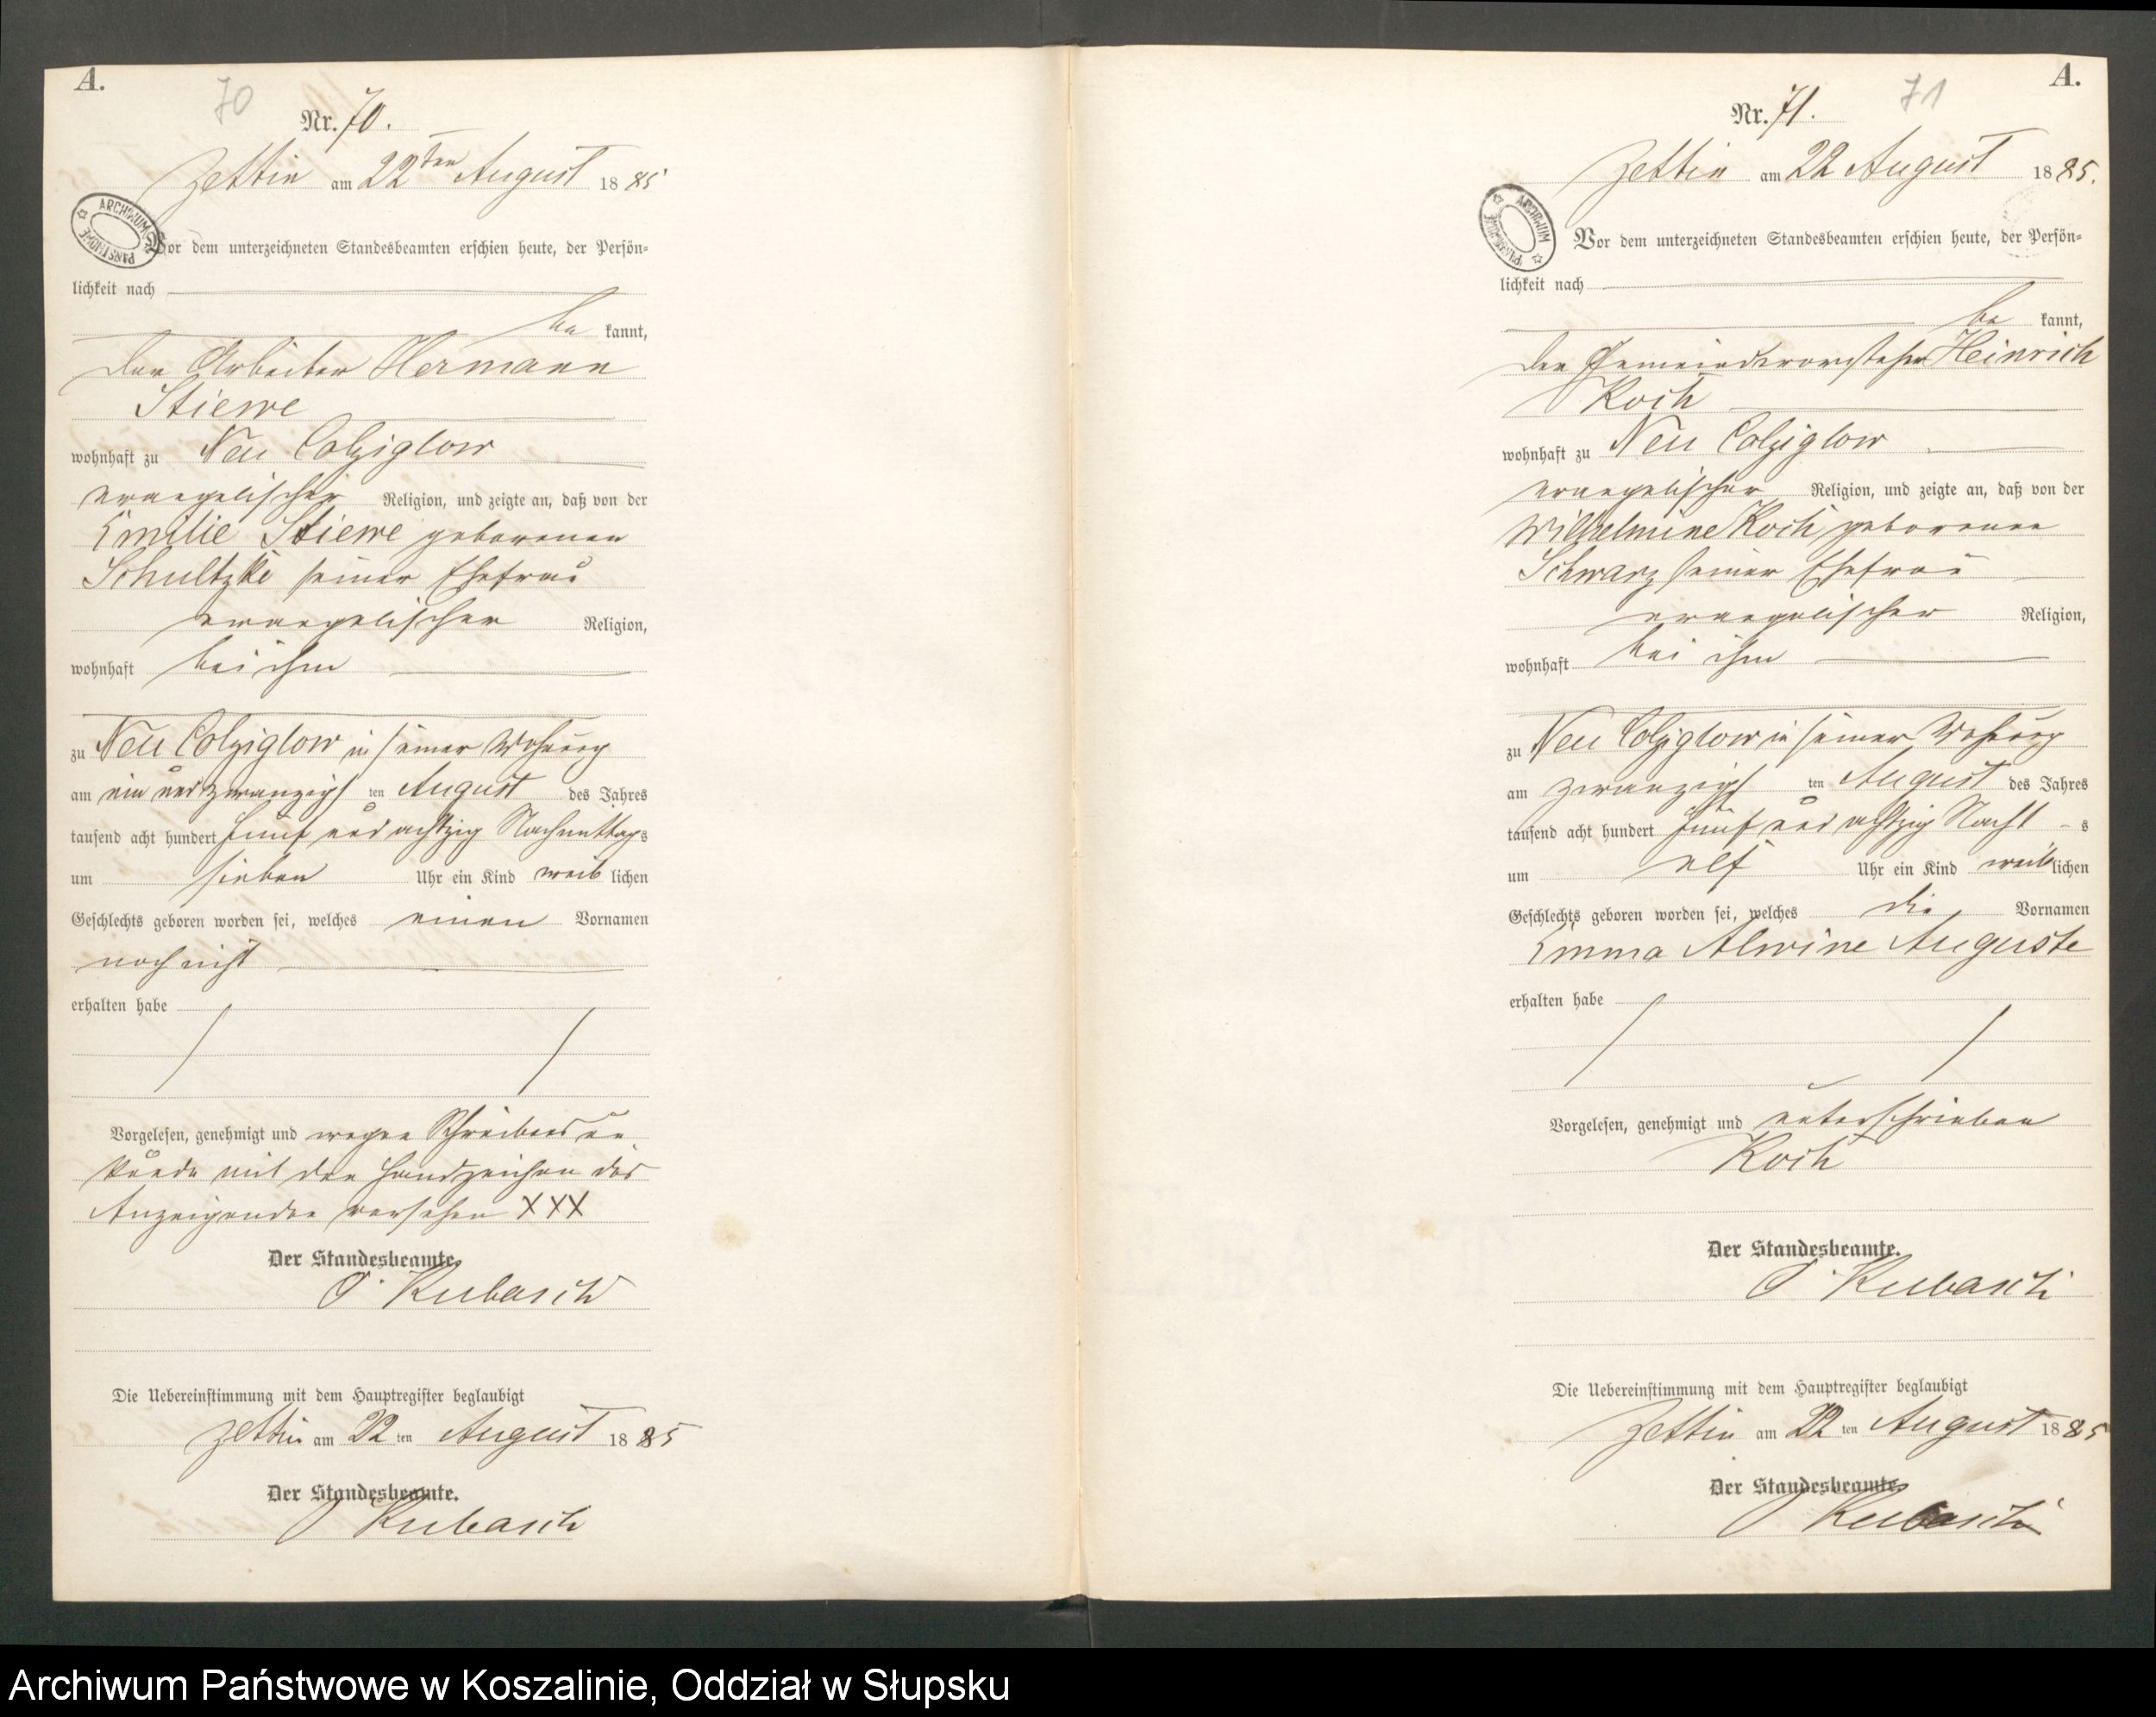 A.
70
Nr. 70.
Zettin am 22ten August 1885
ARCHIWUM PAŃSTWOWE
Vor dem unterzeichneten Standesbeamten erschien heute, der Persön-
lichkeit nach
be kannt,
der Arbeiter Hermann
Stiewe
wohnhaft zu Neu Colziglow
evangelischer Religion, und zeigte an, daß von der
Emilie Stiewe geborenen
Schultzke seiner Ehefrau
evangelischer Religion,
wohnhaft bei ihm
zu Neu Colziglow in seiner Wohnung
am ein und zwanzigs ten August des Jahres
tausend acht hundert fünf und achtzig Nachmittags
um sieben Uhr ein Kind weib lichen
Geschlechts geboren worden sei, welches einen Vornamen
noch nicht
erhalten habe
Vorgelesen, genehmigt und wegen Schreibensun
kunde mit den Handzeichen des
Anzeigenden versehen XXX
Der Standesbeamte.
Kubasch
Die Uebereinstimmung mit dem Hauptregister beglaubigt
Zettin am 22 ten August 1885
Der Standesbeamte.
Kubasch
A.
71
Nr. 71.
Zettin am 22 August 1885.
ARCHIWUM PAŃSTWOWE
Vor dem unterzeichneten Standesbeamten erschien heute, der Persön-
lichkeit nach
be kannt,
der Gemeindevorsteher Heinrich
Koch
wohnhaft zu Neu Colziglow
evangelischer Religion, und zeigte an, daß von der
Wilhelmine Koch geborenen
Schwarz seiner Ehefrau
evangelischer Religion,
wohnhaft bei ihm
zu Neu Colziglow in seiner Wohnung
am zwanzigs ten August des Jahres
tausend acht hundert fünf und achtzig Nacht s
um elf Uhr ein Kind weib lichen
Geschlechts geboren worden sei, welches die Vornamen
Emma Alwine Auguste
erhalten habe
Vorgelesen, genehmigt und unterschrieben
Koch
Der Standesbeamte.
Kubasch
Die Uebereinstimmung mit dem Hauptregister beglaubigt
Zettin am 22 ten August 1885
Der Standesbeamte.
Kubasch
Archiwum Państwowe w Koszalinie, Oddział w Słupsku